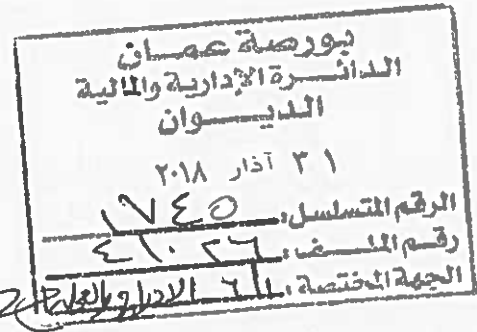 بورصة عمان
الدائرة الإدارية والمالية
الديوان
٣١ آذار ٢٠١٨
الرقم المتسلسل: ١٧٤٥
رقم الملف: ٤١٠٢٦
الجهة المختصة: